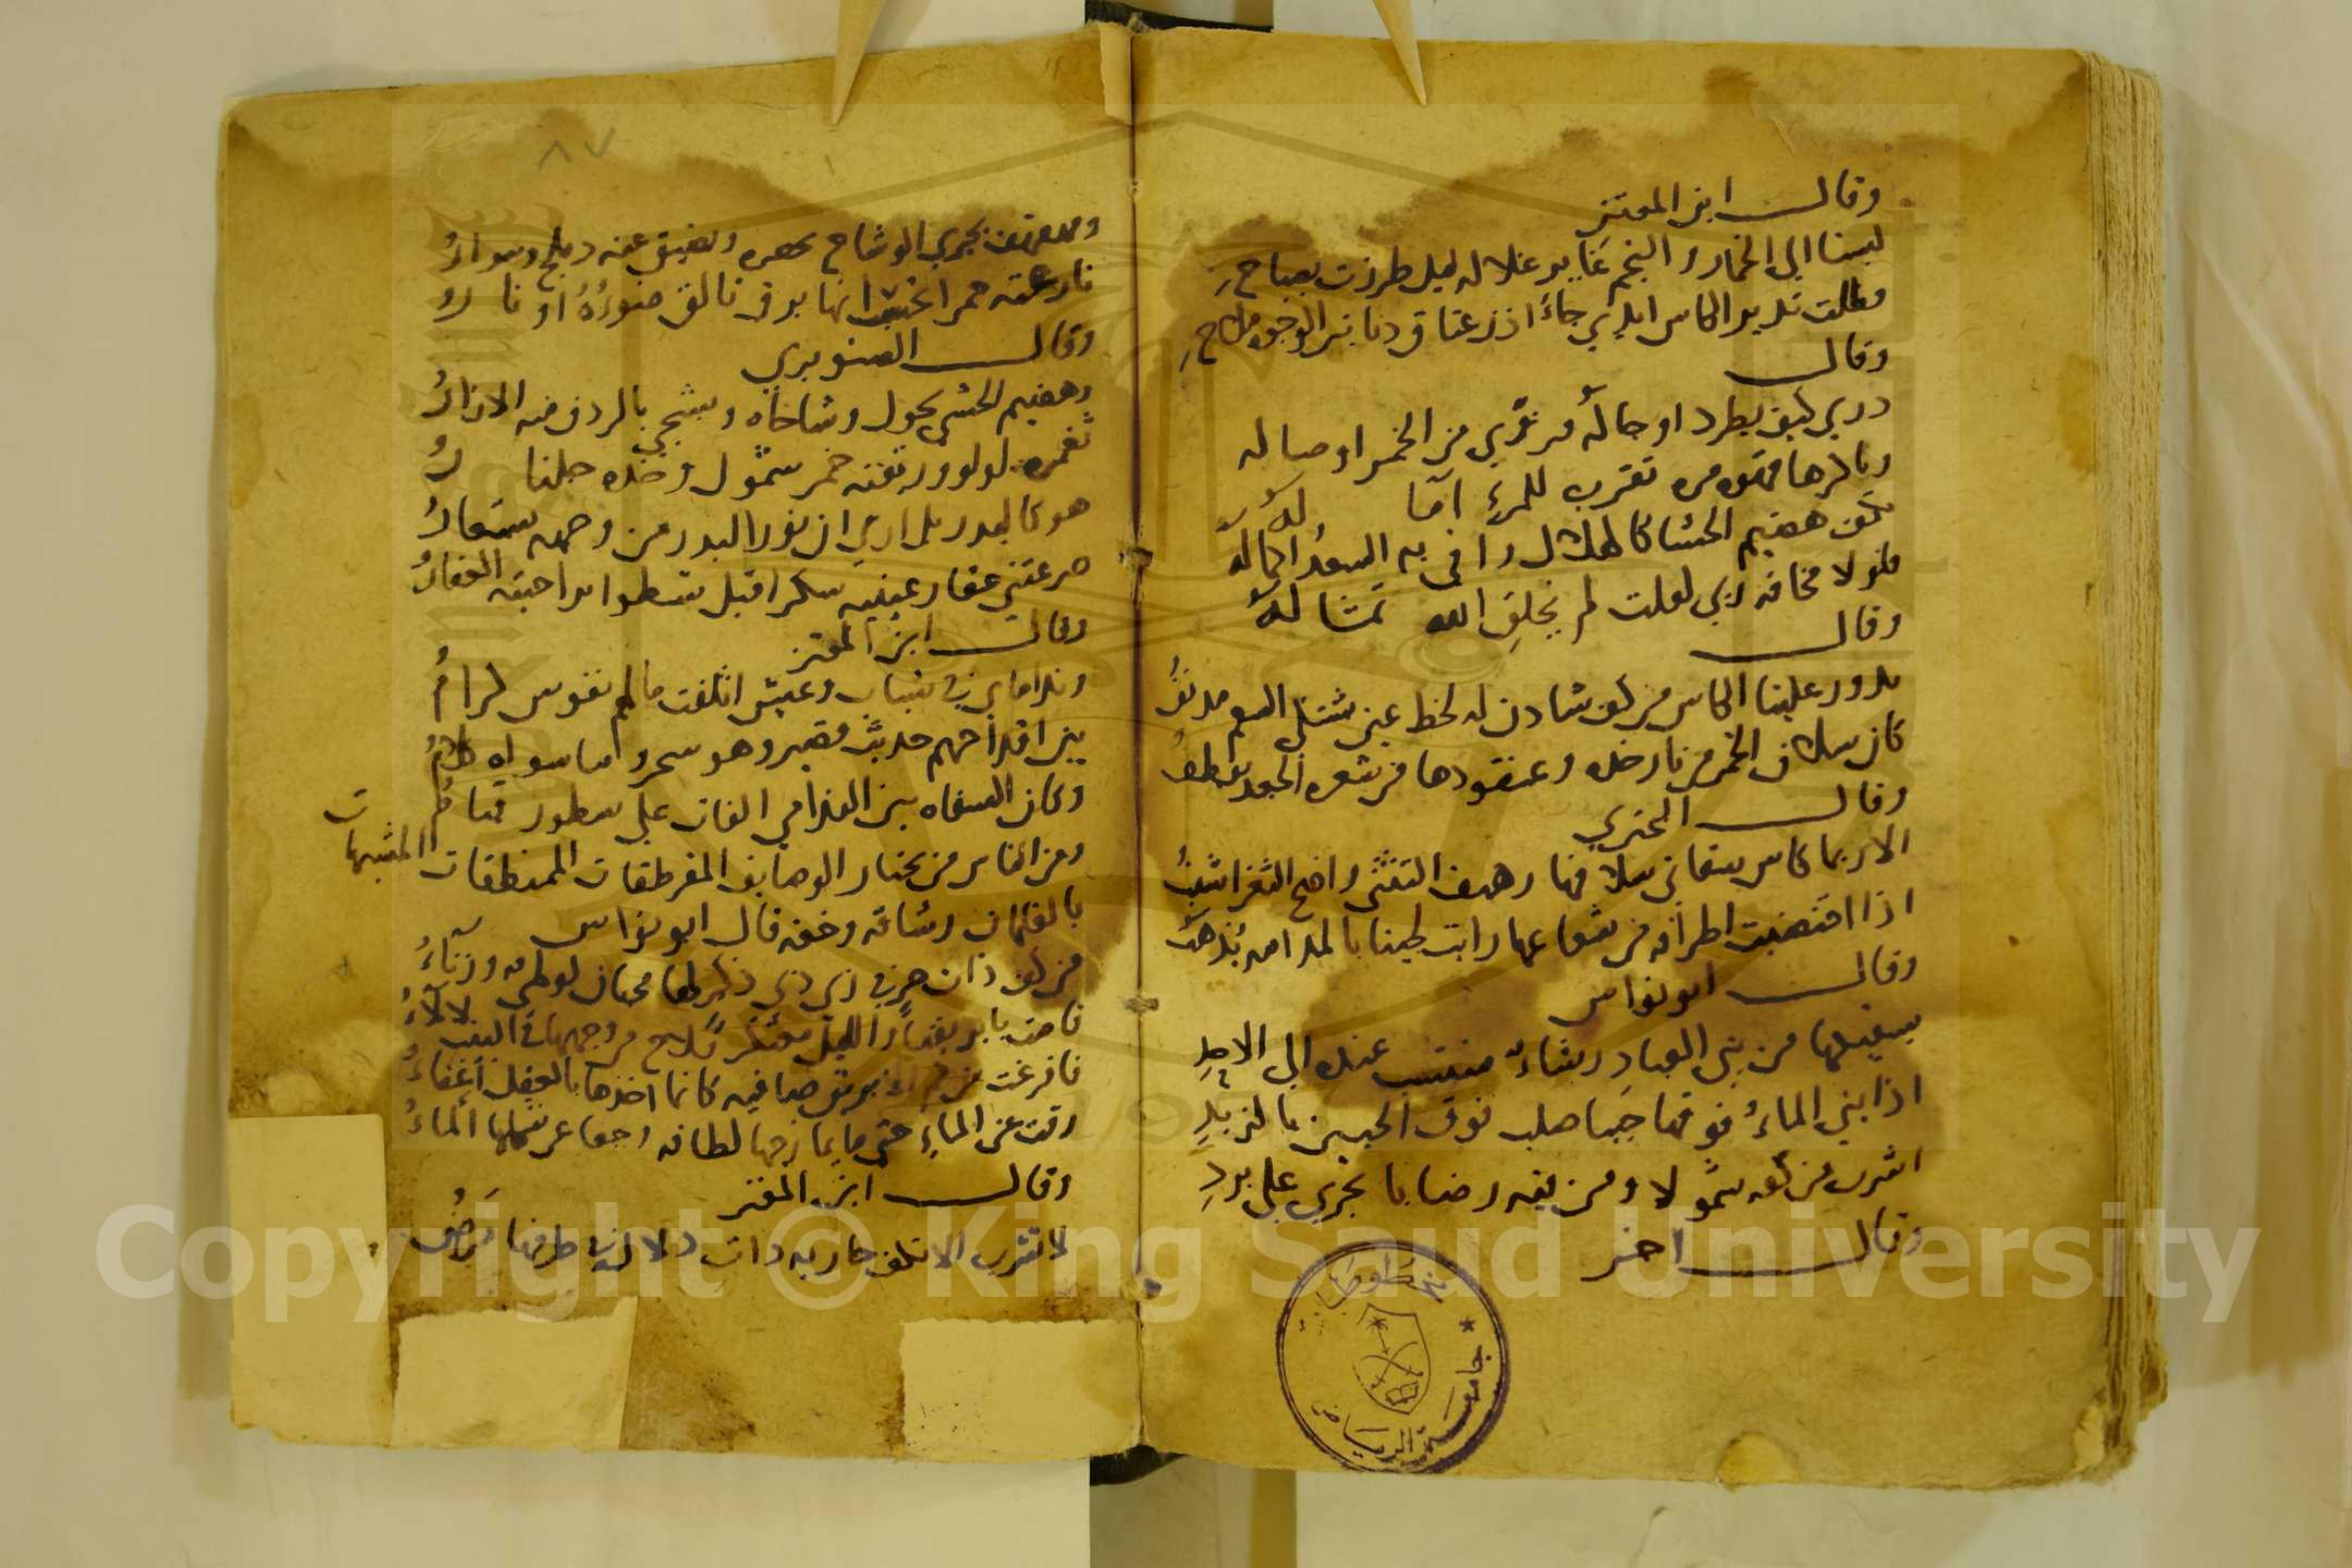 وقال ابن المعتز
لبسنا الى الخمار والنجم غاير غلاله ليل طرزت بصباح
وظلت تدير الكاس ايدي جاءاذر عتاق دنانير الوجوه ملاح
وقال
دريبي كيف يطرد اوجاله من الخمر اوصاله
وباكرها قهوه مره تقرب للمرء اما له
بكف هضيم الحشا كالهلال وافى به السعد اكماله
فلولا مخافه ربي لقلت لم يخلق الله تمثاله
وقال
يدور علينا الكاس من كف شادن له لحظ عين تشتكي السقم مدنف
كان سلاف الخمر من نار خده وعنقودها من شعره الجعد يقطف
وقال البحتري
الا ربما كاس سقاني سلافها رهيف التثني واضح الثغر اشنب
اذا اقتضبت اطرافه من شعاعها رايت لجينا بالمدامه يذهب
وقال ابو نواس
يسقيكها من بني العباد رشاء منتسب عنده الى الاحد
اذا بني الماء فوقها حببا صلب فوق الجبين بالزبد
اشرب من كفه شمولا ومن فيه رضابا يجري على برد
وقال اخر
٨٧
ومهفهف يجري الوشاح ويضيق عنه دملج وسوار
نازعته حمرا برق تالق ضوءه او نار
وقال الصنوبري
وهضيم الحشى يجول وشاحاه ويشجي بالردف منه الازار
ثغره لولو وريقته خمر شمول وخده جلنار
هو كالبدر بل ارى ان نور البدر من وجهه مستعار
صرعتني عقار عينيه سكرا قبل تسطوا براحتيه العقار
وقال ابن المعتز
وندامى في شباب وعيش اتلفت مالهم نفوس كرام
بين اقداحهم حديث قصير وهو سحر وما سواه كلام
وكان السقاه بين الندامى الفات على سطور قيام
ومن الناس من يختار الوصايف المقرطقات الممنطقات المشبهات
بالغلمان رشاقه وخفه قال ابو نواس
من كف ذات حر في زي ذي ذكر لها محبان لوطي وزناء
قامت بابريقها والليل معتكر فلاح من وجهها في البيت لالاء
فافرغت من فم الابريق صافيه كانما اخذها بالعقل اغفاء
رقت عن الماء حتى ما يمازجها لطافه وجفا عن شكلها الماء
وقال ابن المعتز
لا تشرب الا بكف جاريه ذات دلال في طرفها مرض
مخطوطات
جامعة الرياض
Copyright © King Saud University